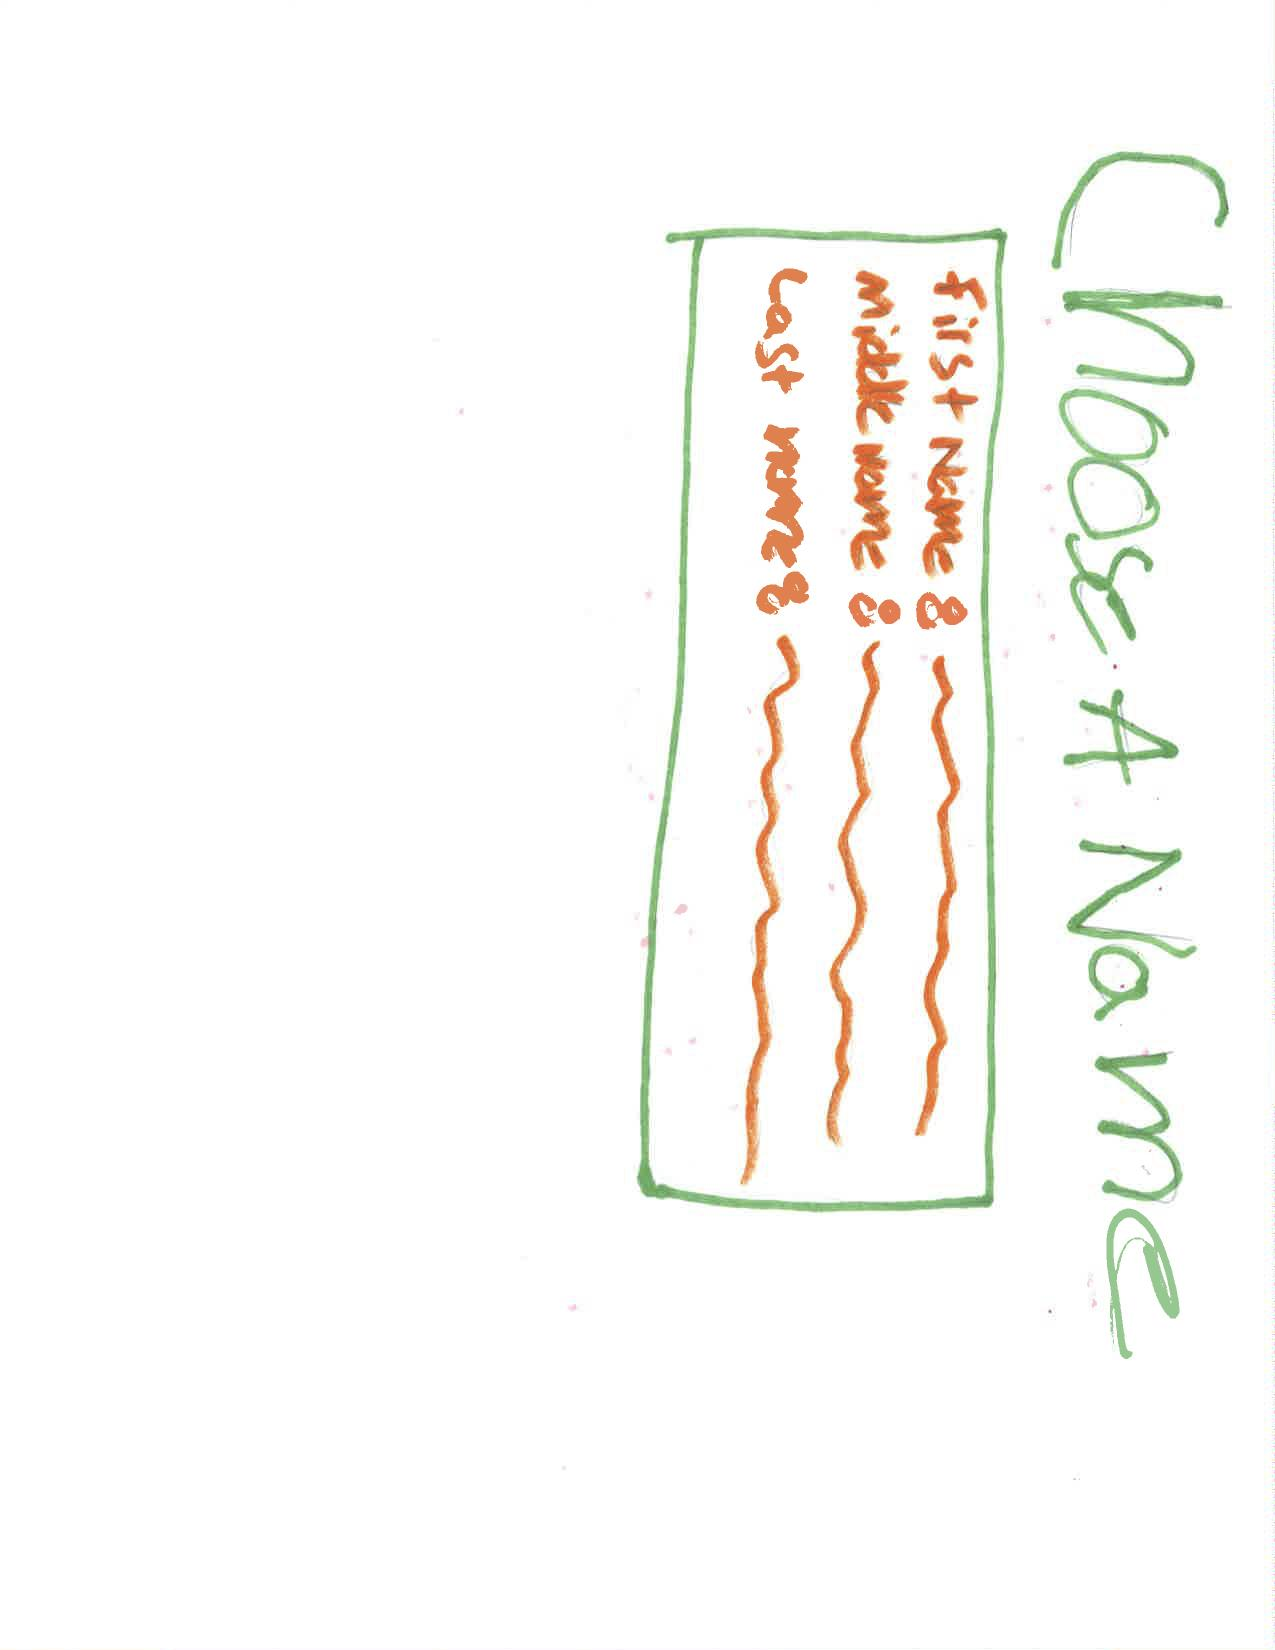 Choose A Name
First Name:
middle name:
Last name: